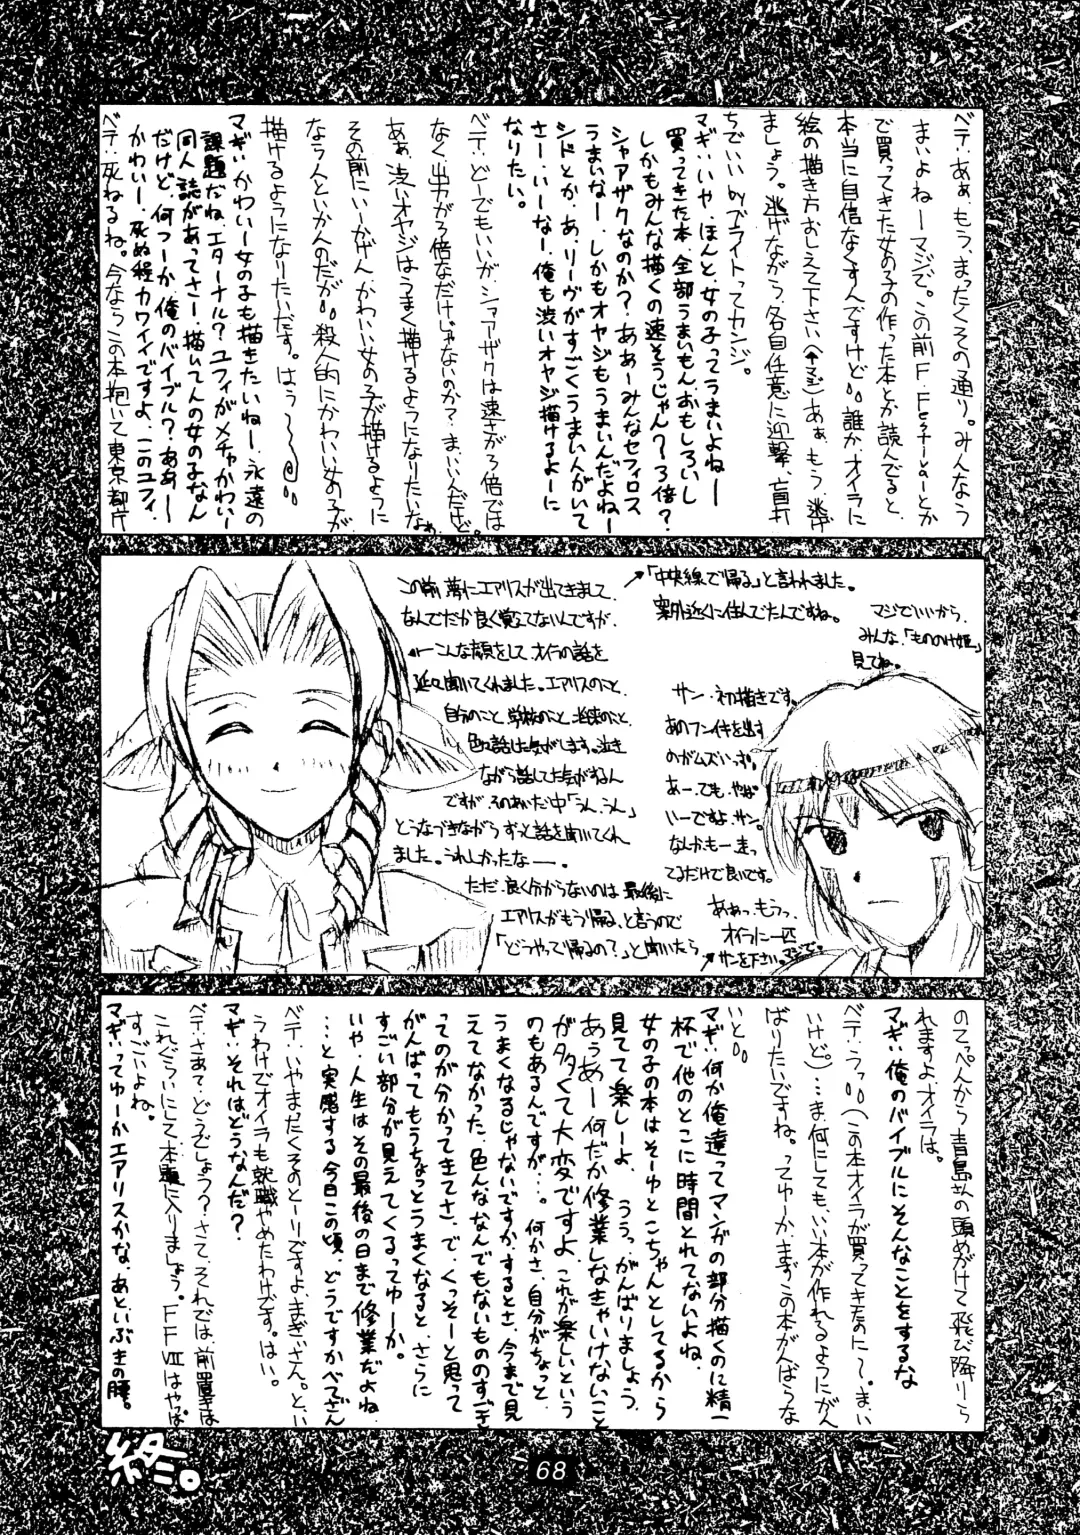 ベテ、あぁ、もう、まったくその通り。みんなう
まいよねーマジで。この前F.Festivalとか
で買ってきた女の子の作った本とか読んでると、
本当に自信なくすんですけど。。誰か、オイラに
絵の描き方おしえて下さい(↑マジ)あぁ、もう、逃げ
ましょう。逃げながら、各自任意に迎撃、盲打
ちでいい byブライトってカンジ。
マギ、いや、ほんと、女の子ってうまいよねー
買ってきた本、全部うまいもん、おもしろいし
しかもみんな描くの速そうじゃん?3倍?
シャアザクなのか?ああーみんなセフィロス
うまいなー、しかもオヤジもうまいんだよねー
シドとか、あ、リーヴがすごくうまい人がいて
さー、いーなー、俺も渋いオヤジ描けるよーに
なりたい。
ベテ、どーでもいいが、シャアザクは速さが3倍では
なく出力が3倍なだけじゃないのか?まいいんだけど。
あぁ、渋いオヤジはうまく描けるようになりたいなぁ。
その前にいーかげん、かわいい女の子が描けるように
なう人といかんのだが。。殺人的にかわいい女の子が
描けるようになりたいだす。はぅ〜〜〜@。。
マギ、かわいー女の子も描きたいねー、永遠の
課題だね、エターナル?ユフィがメチャかわいー
同人誌があってさー、描いてんの女の子なん
だけど、何つーか、俺のバイブル?ああー
かわいー、死ぬ程カワイイですよ、このユフィ、
ベテ、死ねるね。今ならこの本抱いて東京都庁
この前、夢にエアリスが出てきまして、
なんでだか良く覚えてないんですが、
←こんな顔をして、オイラの話を
延々聞いてくれました。エアリスのこと、
自分のこと、学校のこと、将来のこと、
色々話した気がします。泣き
ながら話してた気がすねん
ですが、そのあいだ中「うん、うん」
とうなづきながら ずっと話を聞いてくれ
ました。うれしかったなー。
ただ、良く分からないのは、最後に
エアリスがもう帰る、と言うので
「どうやって帰るの?」と聞いたら
↗「中央線で帰る」と言われました。
案外近くに住んでたんですね。
マジでいいから、
みんな、「もののけ姫」
見てね。
サン・初描きです。
あのフンイキを出す
のがムズいっす。
あー、でも、やぱ
いーですよ、サン。
なんかもー、走っ
てるだけで良いです。
あぁっ、もうっ、
オイラに一匹
↗サンを下さい。マジで。
のてっぺんから青島さんの頭めがけて飛び降りら
れますよオイラは。
マギ、俺のバイブルにそんなことをするな
ベテ、うっ。。(この本オイラが買ってきたのに〜、まい
いけど)…ま何にしても、いい本が作れるようにがん
ばりたいですね。ってゆーか、まずこの本がんばらな
いと。。
マギ、何か俺達ってマンガの部分描くのに精一
杯で他のとこに時間とれてないよね、
女の子の本はそーゆとこちゃんとしてるから
見てて楽しーよ、ううっ、がんばりましょう、
あぅあー何だか修業しなきゃいけないこと
が多くて大変ですよ、これが楽しいという
のもあるんですが…。何かさ、自分がちょっと
うまくなるじゃないですか、するとさ、今まで見
えてなかった、色んななんでもないもののすごさ
ってのが分かってきてさ、で、くっそーと思って
がんばってもうちょっとうまくなると、さらに
すごい部分が見えてくるってゆーか。
いや、人生はその最後の日まで修業だよね、
…と実感する今日この頃、どうですかべてさん
ベテ、いやまったくそのとーりですよ、まぎぃさん。とい
うわけでオイラも就職やめたわけです。はい。
マギ、それはどうなんだ?
ベテ、さあて、どうでしょう?さて、それでは、前置きは
これぐらいにして本題に入りましょう。FFⅦはやっぱ
すごいよね。
マギ、ってゆーかエアリスかな、あと、いぶきの腰。
終。
68